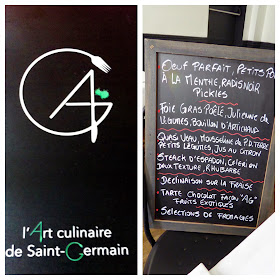 AG
l'Art culinaire
de Saint-Germain
Oeuf Parfait, Petits Po
À la Menthe, Radis Noir
Pickles
Foie Gras Poêlé, Julienne de
légumes, Bouillon d'Artichaud
Quasi Veau, Mousseline de P.d. Terre
Petits légumes, Jus au Citron
Steack d'Espadon, Céleri en
Deux Texture, Rhubarbe
Déclinaison sur la Fraise
Tarte Chocolat Façon "AG"
Fruits Exotiques
Selections de Fromages